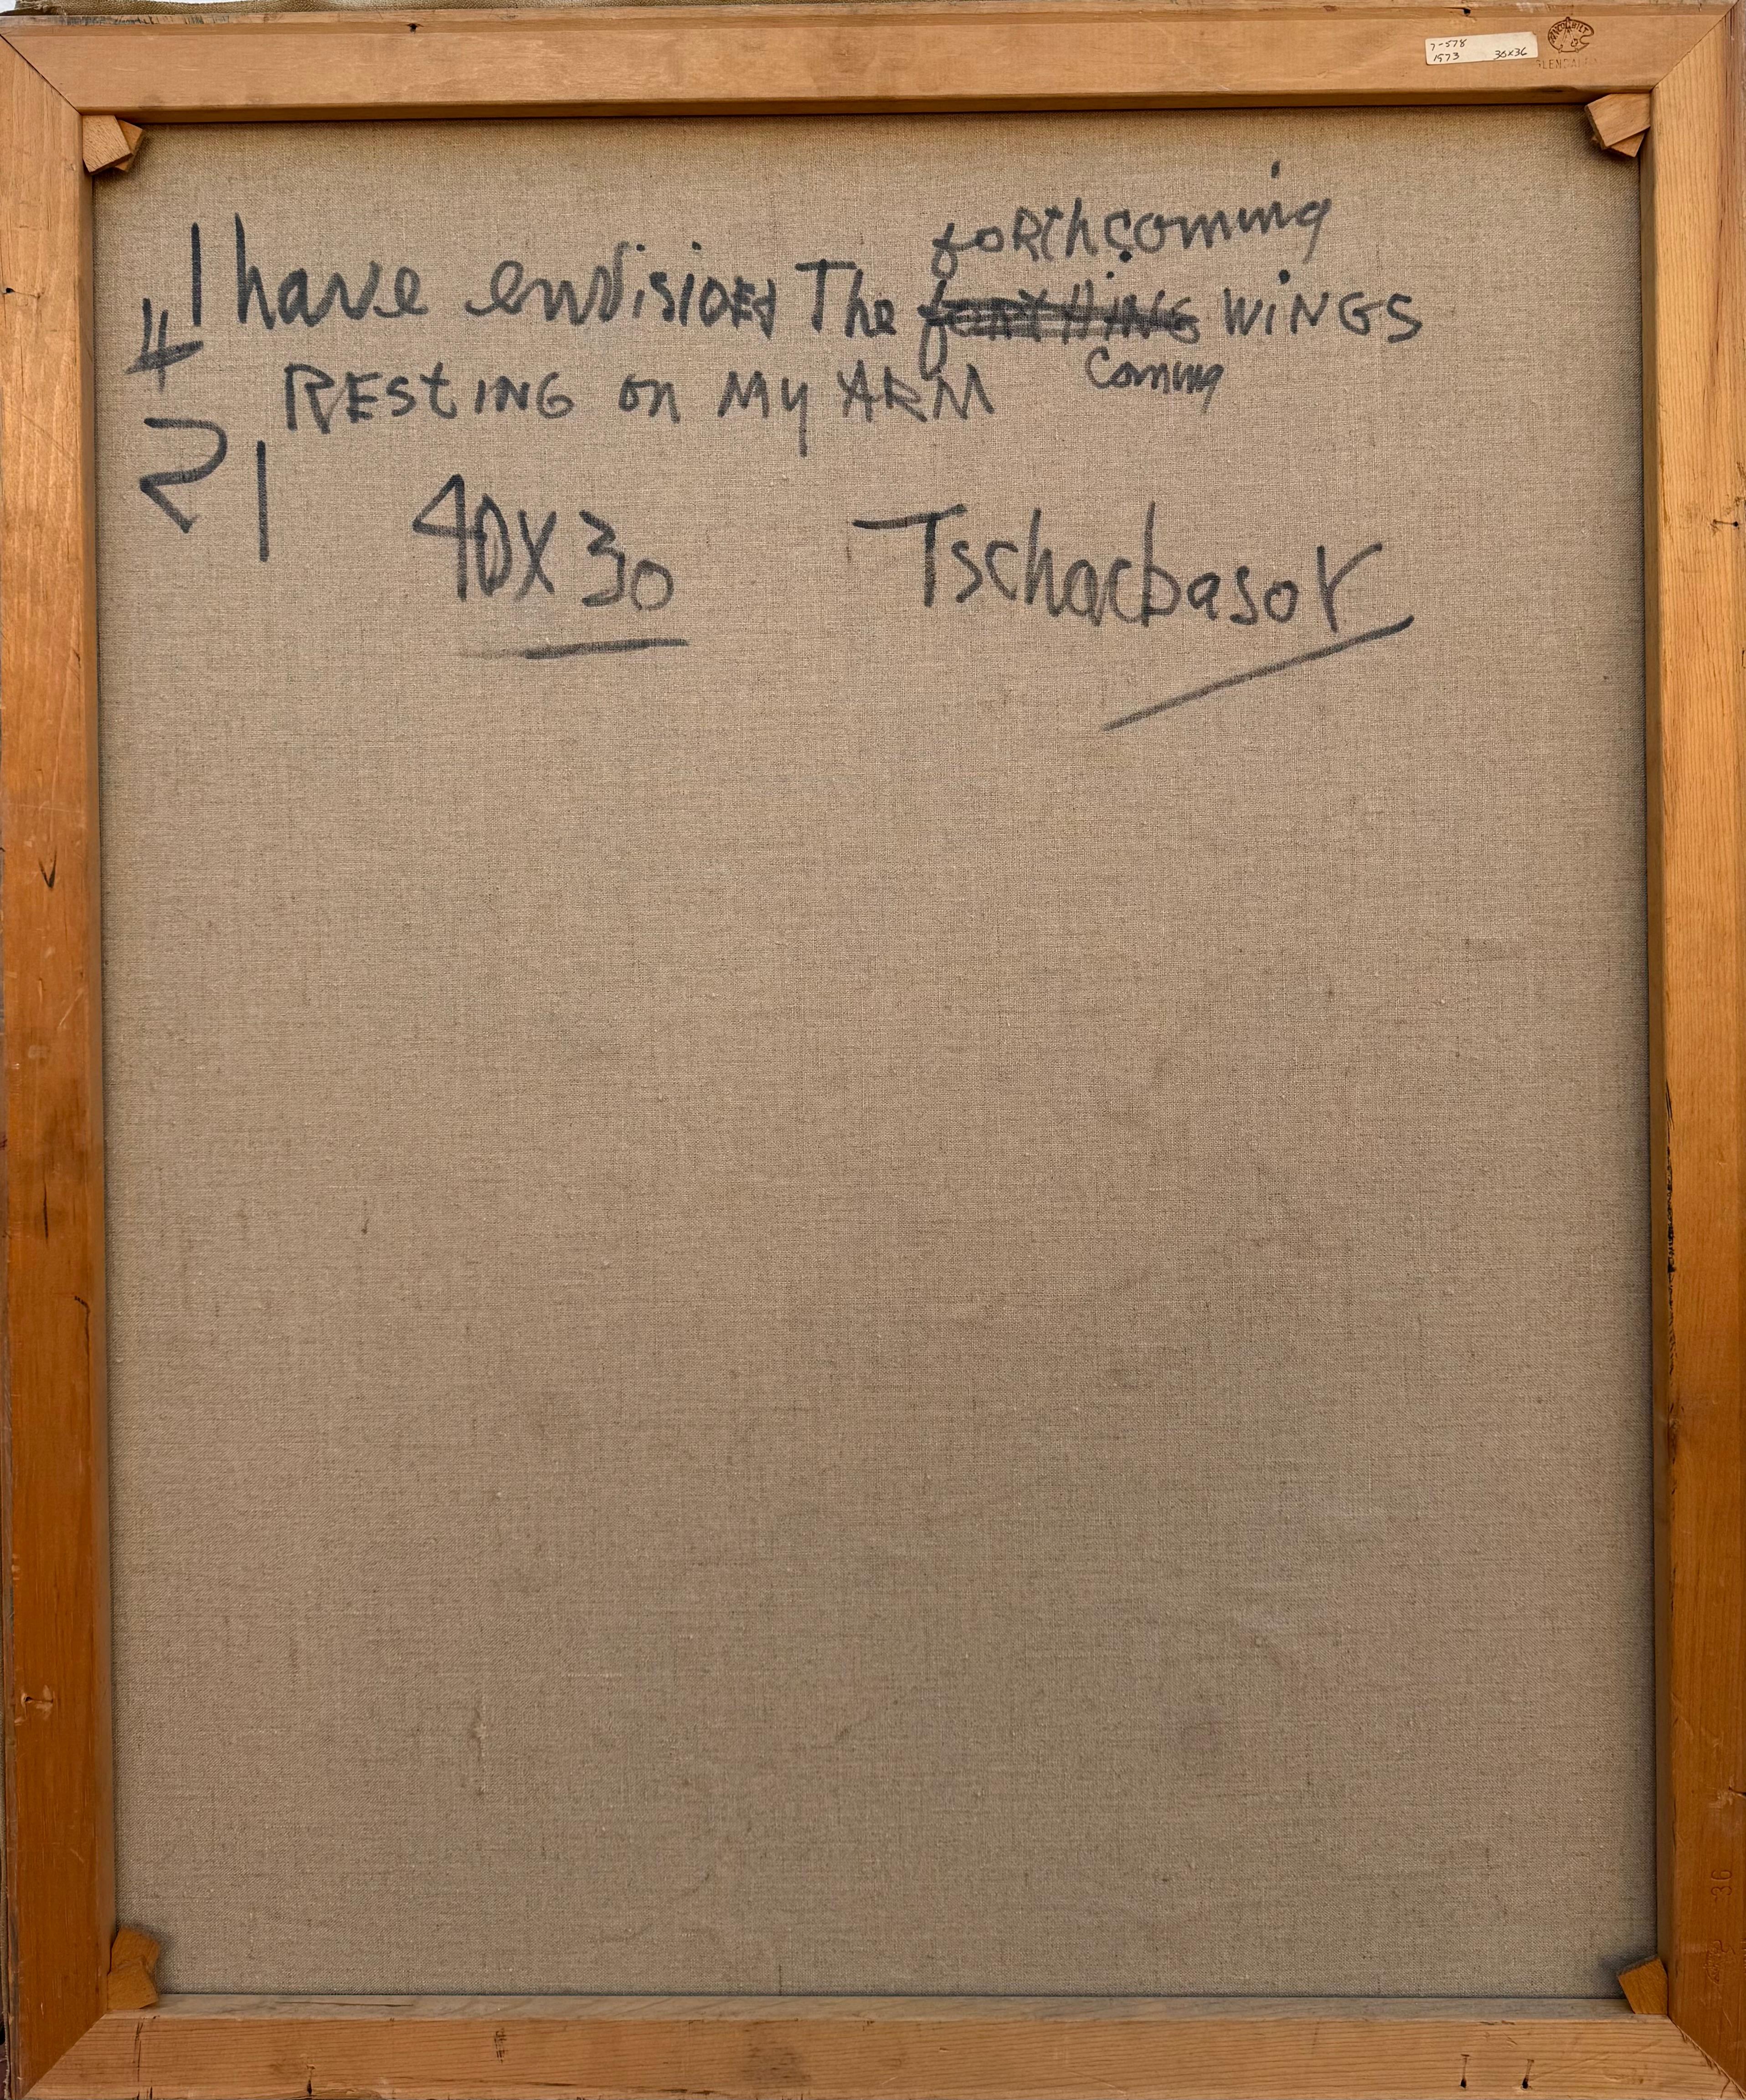 7-578
1973 30x36
GLENDALE
forthcoming
I have envisioned The forthing WINGS
coming
RESTING on My ARM
# 21 40X30 Tschacbasov
36